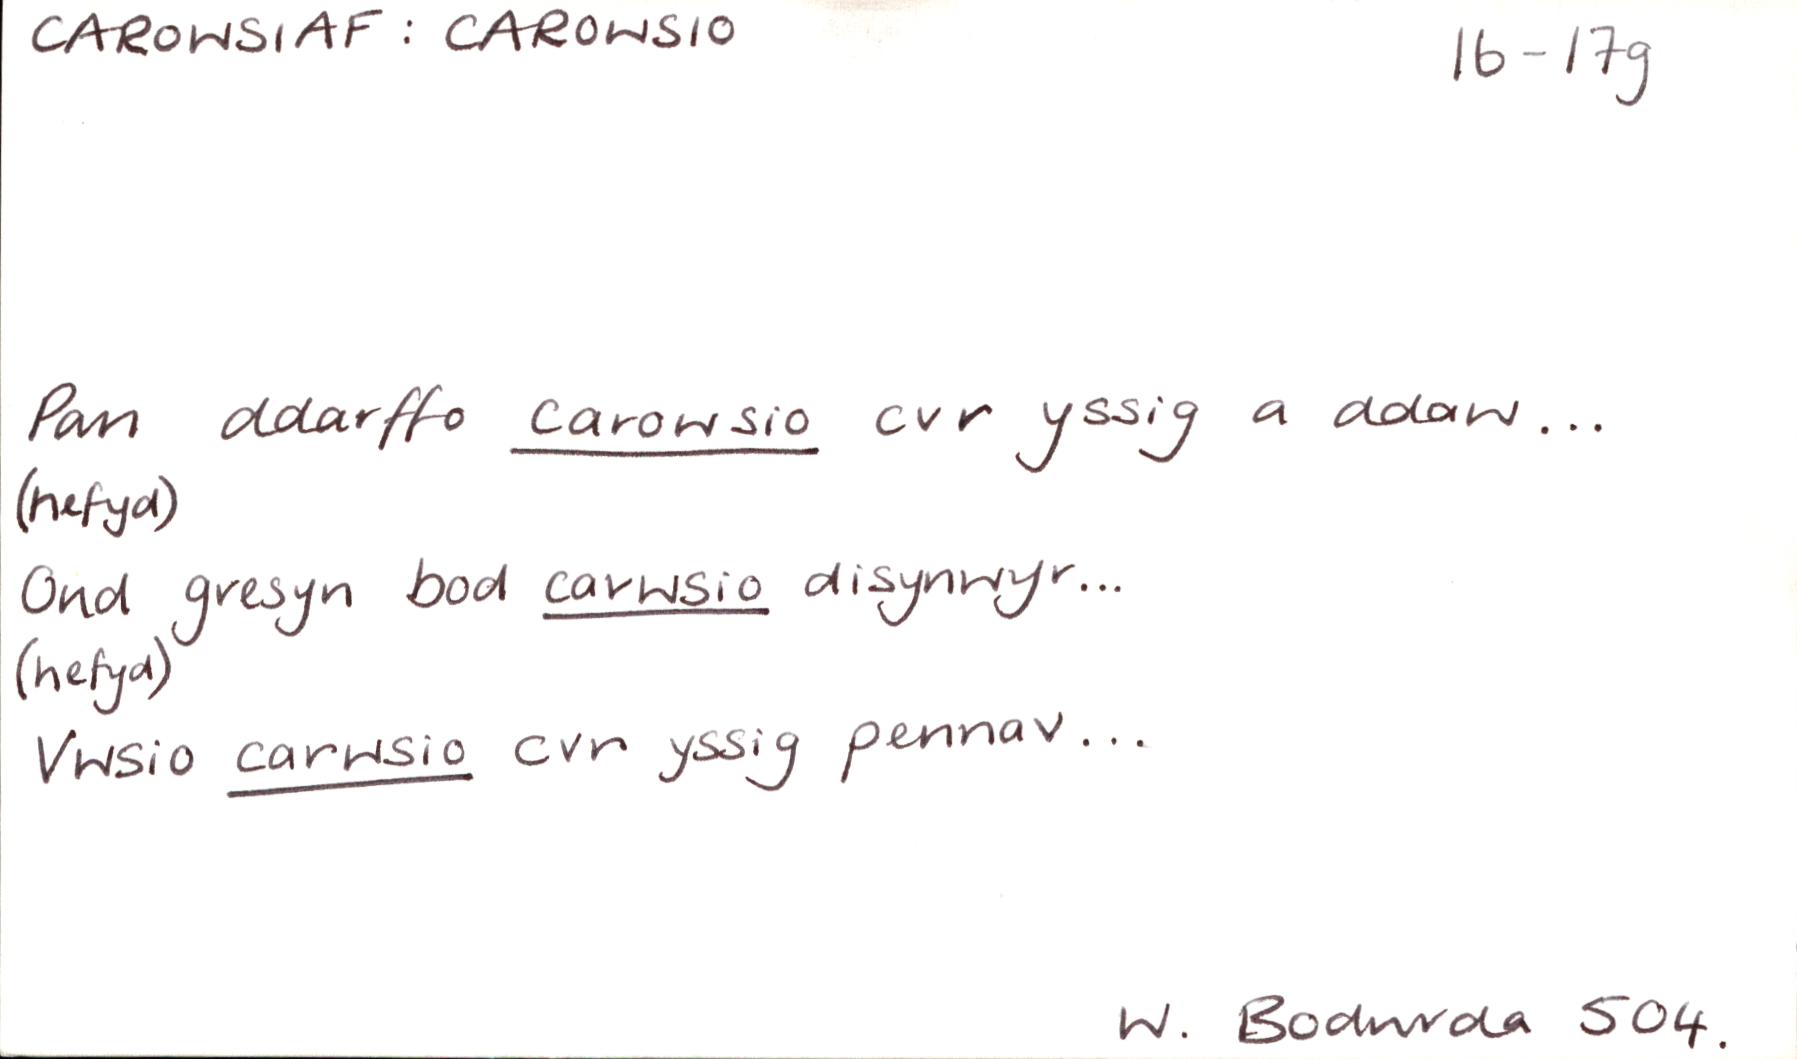 CAROWSIAF : CAROWSIO
16-17g
Pan ddarffo carowsio cvr yssig a ddaw...
(hefyd)
Ond gresyn bod carwsio disynwyr...
(hefyd)
Vwsio carwsio cvr yssig pennav...
W. Bodwrda 504.